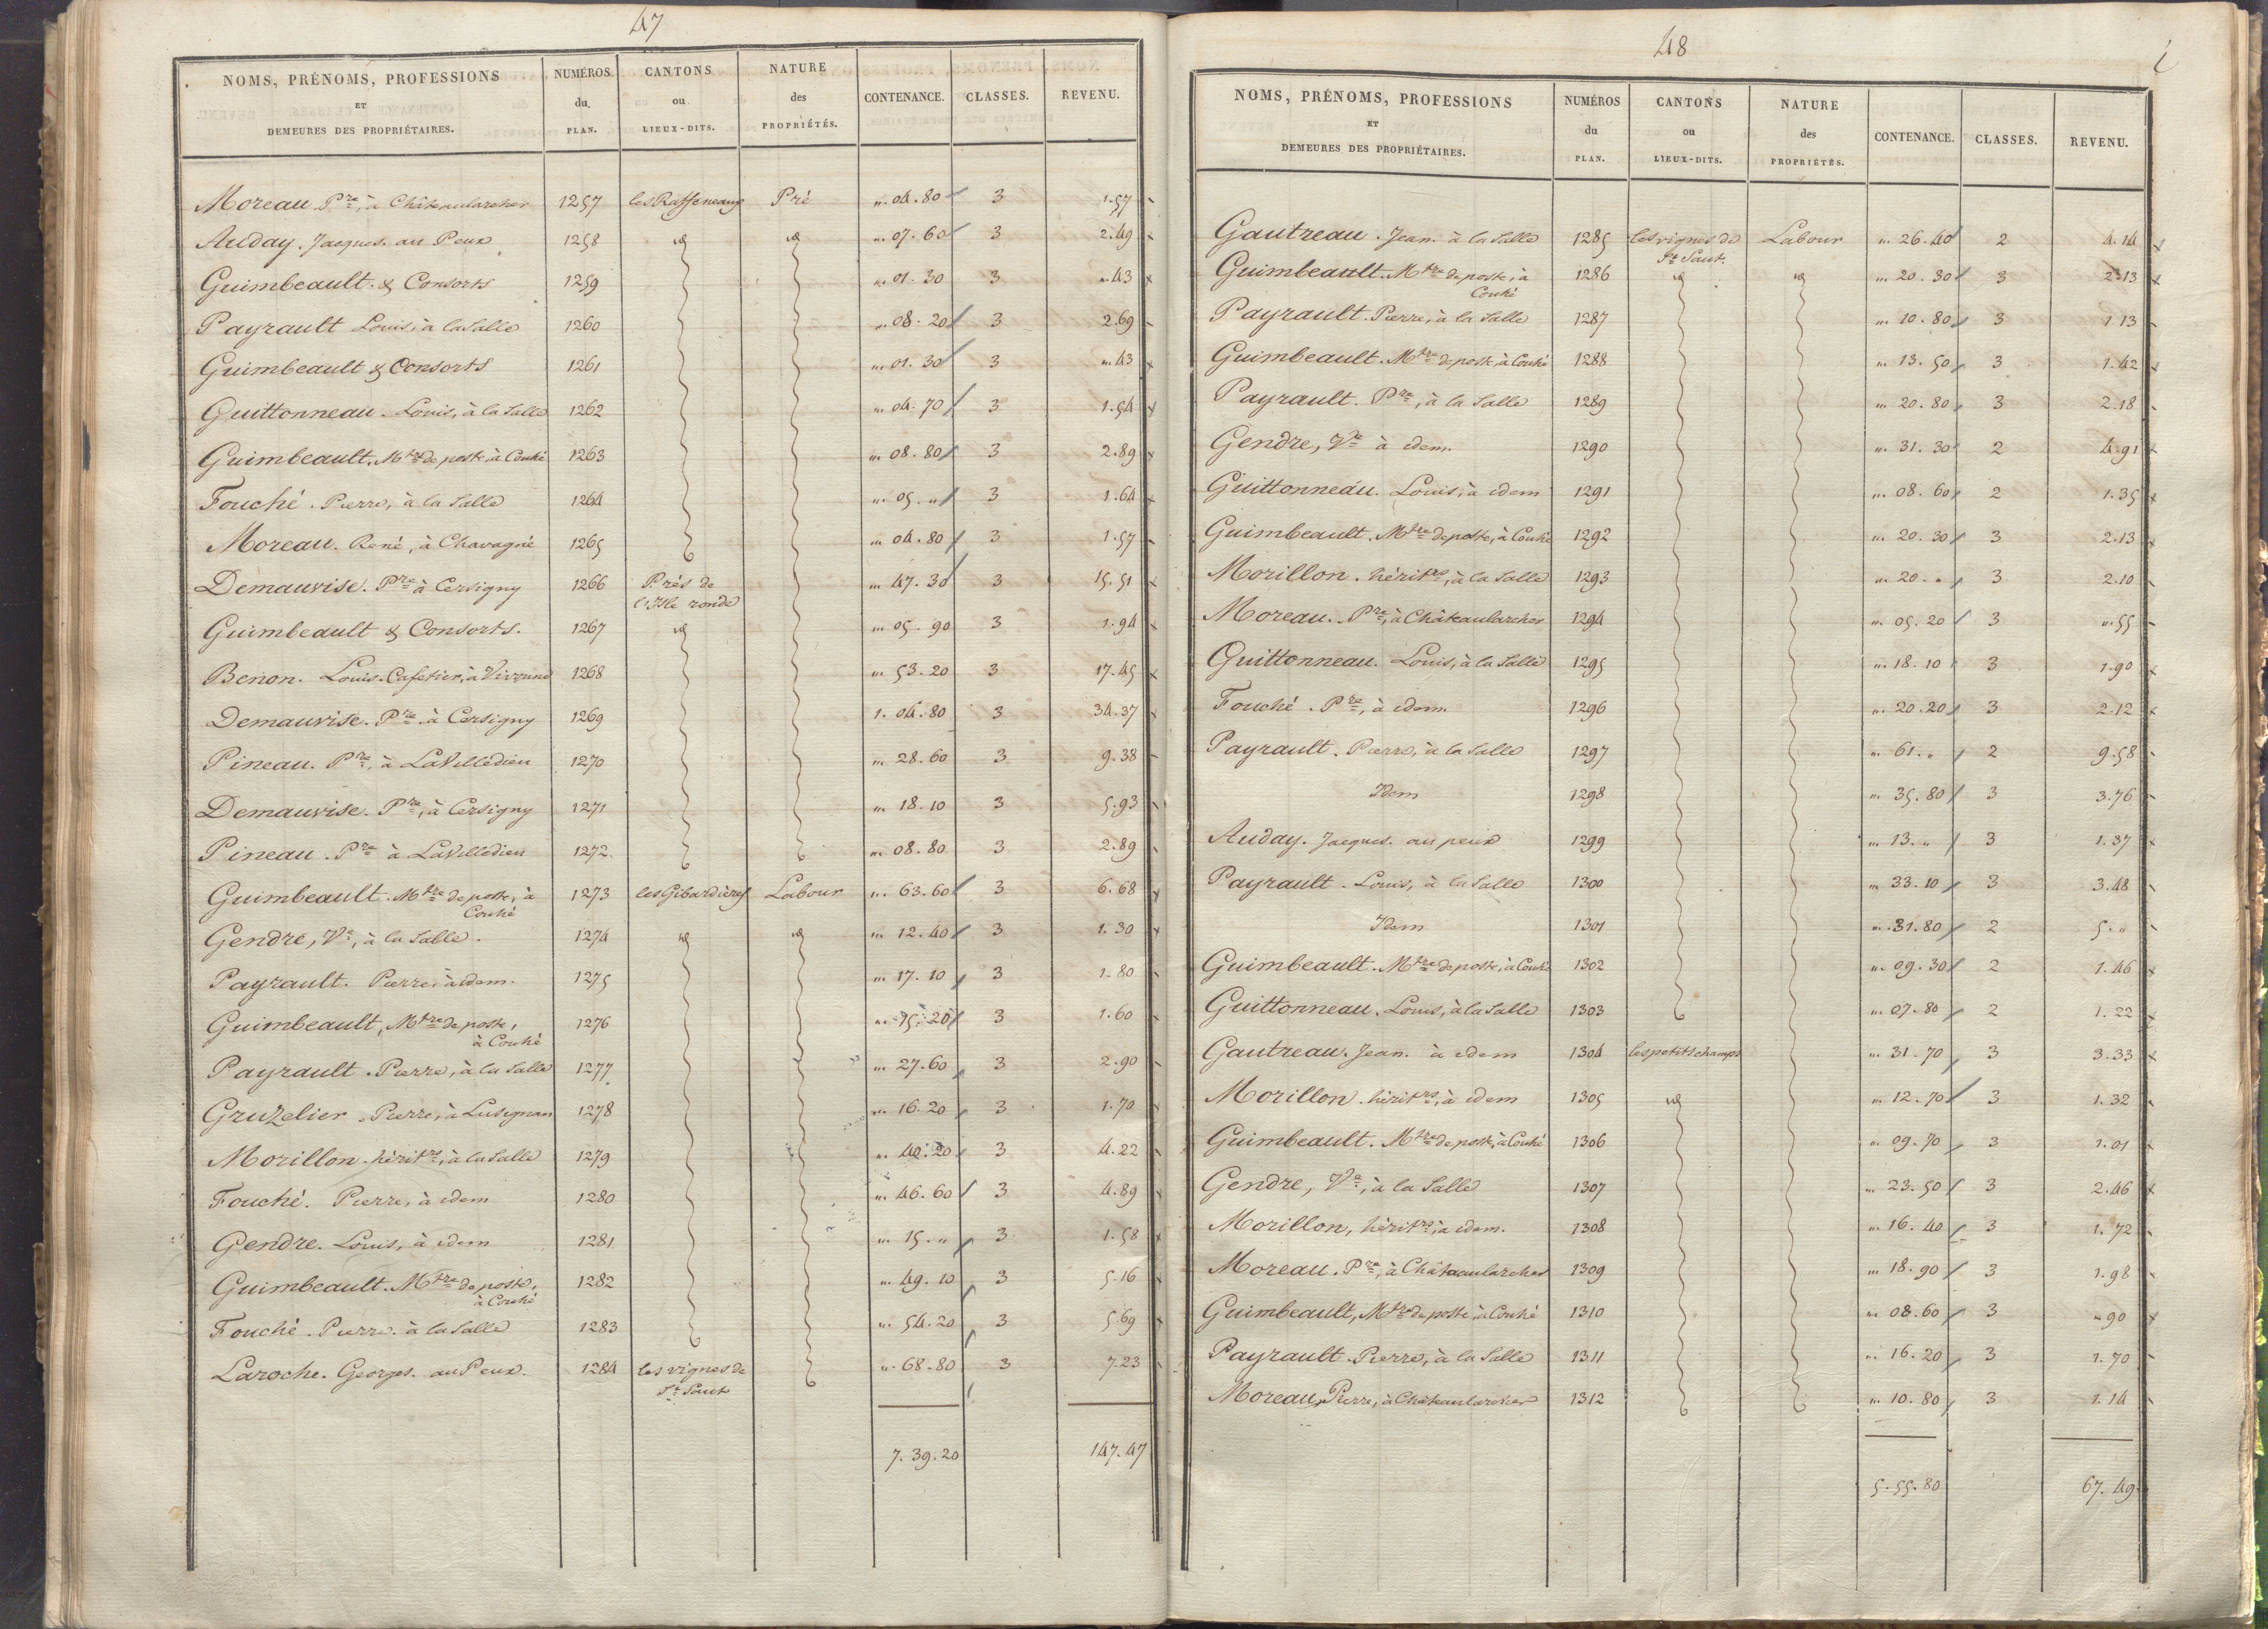 47
NOMS, PRÉNOMS, PROFESSIONS ET DEMEURES DES PROPRIÉTAIRES. NUMÉROS du PLAN. CANTONS ou LIEUX-DITS. NATURE des PROPRIÉTÉS. CONTENANCE. CLASSES. REVENU.
Moreau. Pre, à Châteaularcher 1257 les Raffeneaux Pré „. 04. 80 3 1. 57
Auday. Jacques. au Peux 1258 id id „. 07. 60 3 2. 49
Guimbeault. & Consorts 1259 „. 01. 30 3 „. 43
Payrault Louis, à la Salle 1260 „. 08. 20 3 2. 69
Guimbeault & Consorts 1261 „. 01. 30 3 „. 43
Guittonneau. Louis, à la Salle 1262 „. 04. 70 3 1. 54
Guimbeault. Mtre de poste à Couhé 1263 „. 08. 80 3 2. 89
Fouché. Pierre, à la Salle 1264 „. 05. „ 3 1. 64
Moreau. René, à Chavagné 1265 „. 04. 80 3 1. 57
Demauvise. Pre à Cersigny 1266 Prés de „. 47. 30 3 15. 51
l'Isle ronde
Guimbeault & Consorts. 1267 id „. 05. 90 3 1. 94
Benon. Louis. Cafetier, à Vivonne 1268 „. 53. 20 3 17. 45
Demauvise. Pre à Cersigny 1269 1. 04. 80 3 34. 37
Pineau. Pre, à LaVilledieu 1270 „. 28. 60 3 9. 38
Demauvise. Pre, à Cersigny 1271 „. 18. 10 3 5. 93
Pineau. Pre à LaVilledieu 1272. „. 08. 80 3 2. 89
Guimbeault. Mtre de poste, à 1273 les Gibardières Labour „. 63. 60 3 6. 68
Couhé
Gendre, Ve, à la Salle. 1274 id id „. 12. 40 3 1. 30
Payrault. Pierre, à idem. 1275 „. 17. 10 3 1. 80
Guimbeault, Mtre de poste, 1276 „. 15. 20 3 1. 60
à Couhé
Payrault. Pierre, à la Salle 1277 „. 27. 60 3 2. 90
Gruzelier. Pierre, à Lusignan 1278 „. 16. 20 3 1. 70
Morillon. héritrs, à la Salle 1279 „. 40. 20 3 4. 22
Fouché. Pierre, à idem 1280 „. 46. 60 3 4. 89
Gendre. Louis, à idem 1281 „. 15. „ 3 1. 58
Guimbeault. Mtre de poste, 1282 „. 49. 10 3 5. 16
à Couhé
Fouché. Pierre. à la Salle 1283 „. 54. 20 3 5. 69
Laroche. Georges. au Peux. 1284 les vignes de „. 68. 80 3 7. 23
St Saut
7. 39. 20 147. 47
48
NOMS, PRÉNOMS, PROFESSIONS ET DEMEURES DES PROPRIÉTAIRES. NUMÉROS du PLAN. CANTONS ou LIEUX-DITS. NATURE des PROPRIÉTÉS. CONTENANCE. CLASSES. REVENU.
Gautreau. Jean. à la Salle 1285 les vignes de Labour „. 26. 40 2 4. 14
St Saut.
Guimbeault. Mtre de poste, à 1286 id id „. 20. 30 3 2. 13
Couhé
Payrault. Pierre, à la Salle 1287 „. 10. 80 3 1. 13
Guimbeault. Mtre de poste, à Couhé 1288 „. 13. 50 3 1. 42
Payrault. Pre, à la Salle 1289 „. 20. 80 3 2. 18
Gendre, Ve à idem. 1290 „. 31. 30 2 4. 91
Guittonneau. Louis, à idem 1291 „. 08. 60 2 1. 35
Guimbeault. Mtre de poste, à Couhé 1292 „. 20. 30 3 2. 13
Morillon. héritrs, à la Salle 1293 „. 20. „ 3 2. 10
Moreau. Pre, à Châteaularcher 1294 „. 05. 20 3 „. 55
Guittonneau. Louis, à la Salle 1295 „. 18. 10 3 1. 90
Fouché. Pre, à idem 1296 „. 20. 20 3 2. 12
Payrault. Pierre, à la Salle 1297 „. 61. „ 2 9. 58
Idem 1298 „. 35. 80 3 3. 76
Auday. Jacques. au peux 1299 „. 13. „ 3 1. 37
Payrault. Louis, à la Salle 1300 „. 33. 10 3 3. 48
Idem 1301 „. 31. 80 2 5. „
Guimbeault. Mtre de poste, à Couhé 1302 „. 09. 30 2 1. 46
Guittonneau. Louis, à la Salle 1303 „. 07. 80 2 1. 22
Gautreau. Jean. à idem 1304 les petits champs „. 31. 70 3 3. 33
Morillon. héritrs, à idem 1305 id „. 12. 70 3 1. 32
Guimbeault. Mtre de poste, à Couhé 1306 „. 09. 70 3 1. 01
Gendre, Ve, à la Salle 1307 „. 23. 50 3 2. 46
Morillon, héritrs, à idem. 1308 „. 16. 40 3 1. 72
Moreau. Pre, à Châteaularcher 1309 „. 18. 90 3 1. 98
Guimbeault, Mtre de poste, à Couhé 1310 „. 08. 60 3 „ 90
Payrault. Pierre, à la Salle 1311 „. 16. 20 3 1. 70
Moreau, Pierre, à Châteaularcher 1312 „. 10. 80 3 1. 14
5. 55. 80 67. 49